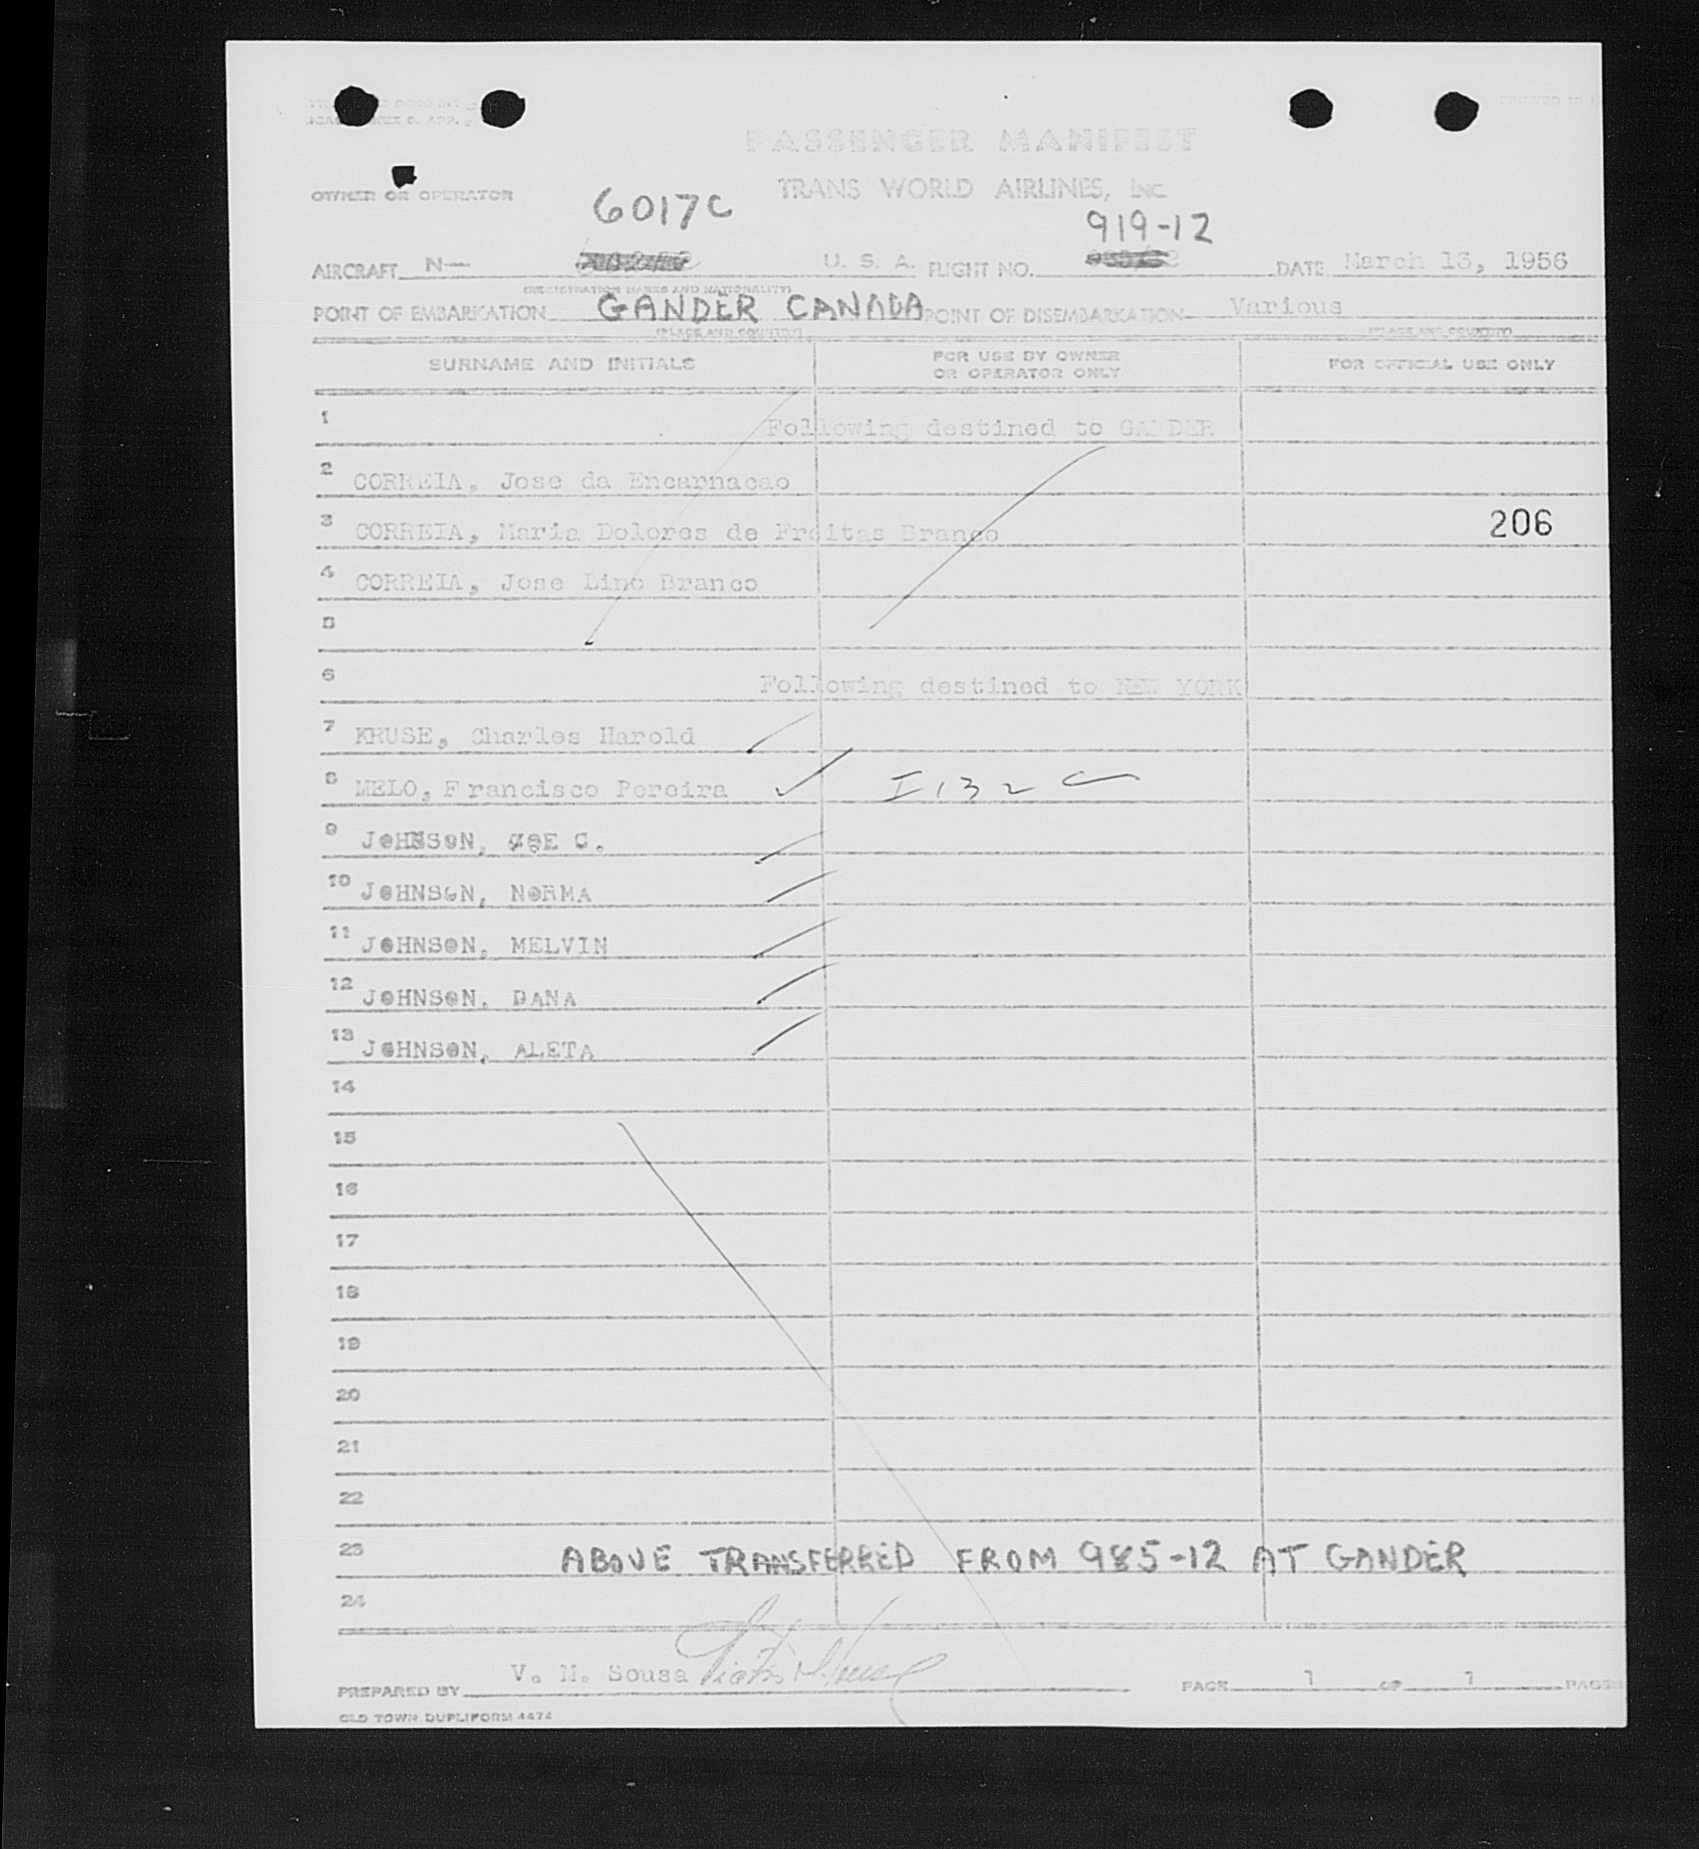 PASSENGER MANIFEST
OWNER OR OPERATOR
TRANS WORLD AIRLINES, Inc
6017C
919-12
AIRCRAFT N— U. S. A. FLIGHT NO. DATE March 13, 1956
(REGISTRATION MARKS AND NATIONALITY)
POINT OF EMBARKATION GANDER CANADA POINT OF DISEMBARKATION Various
(PLACE AND COUNTRY) (PLACE AND COUNTRY)
SURNAME AND INITIALS FOR USE BY OWNER OR OPERATOR ONLY FOR OFFICIAL USE ONLY
1 Following destined to GANDER
2 CORREIA, Jose da Encarnacao
3 CORREIA, Maria Dolores de Freitas Branco 206
4 CORREIA, Jose Lino Branco
5
6 Following destined to NEW YORK
7 KRUSE, Charles Harold
8 MELO, Francisco Pereira I 132 C
9 JOHNSON, C.
10 JOHNSON, NORMA
11 JOHNSON, MELVIN
12 JOHNSON, DANA
13 JOHNSON, ALETA
14
15
16
17
18
19
20
21
22
23 ABOVE TRANSFERRED FROM 985-12 AT GANDER
24
PREPARED BY V. M. Sousa PAGE 1 OF 1 PAGES
OLD TOWN DUPLIFORM 4474